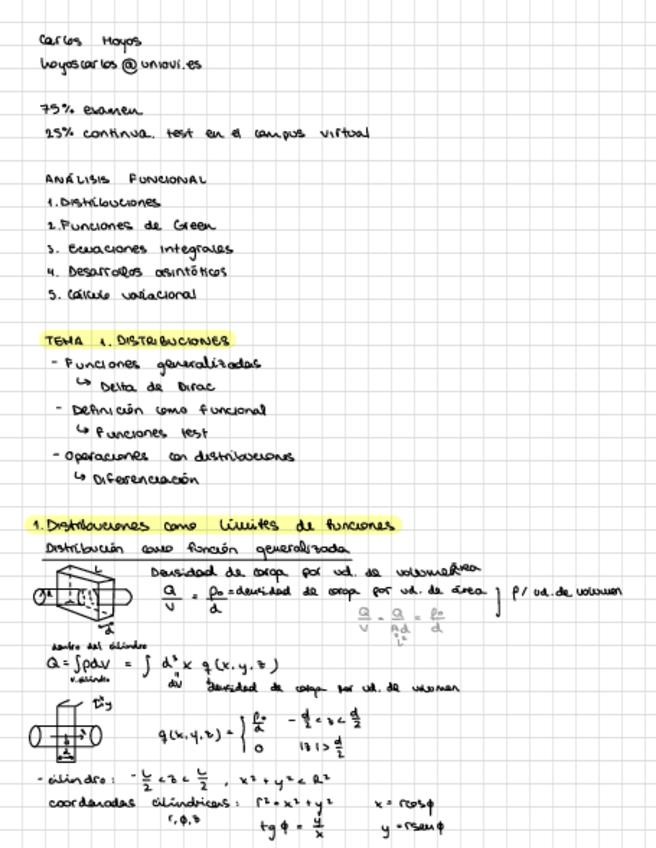 Carlos Hoyos
hoyoscarlos@uniovi.es
75% examen
25% continua, test en el campus virtual
ANÁLISIS FUNCIONAL
1. Distribuciones
2. Funciones de Green
3. Ecuaciones integrales
4. Desarrollos asintóticos
5. Cálculo variacional
TEMA 1. DISTRIBUCIONES
- Funciones generalizadas
↳ Delta de Dirac
- Definición como funcional
↳ Funciones test
- Operaciones con distribuciones
↳ Diferenciación
1. Distribuciones como límites de funciones
Distribución como función generalizada
Densidad de carga por ud. de área
Q/V = ρ₀/d = densidad de carga por ud. de área ] ρ/ud. de volumen
Q/V = Q/(A d) = ρ₀/d
L²
dentro del cilindro
Q = ∫ρdV = ∫ d³x q(x,y,z)
V.cilindro
dV densidad de carga por ud. de volumen
q(x,y,z) = { ρ₀/d   -d/2 < z < d/2
0   |z| > d/2
- cilindro: -L/2 < z < L/2 , x² + y² < R²
coordenadas cilíndricas: r² = x² + y²   x = rcosϕ
r, ϕ, z   tg ϕ = y/x   y = rsenϕ